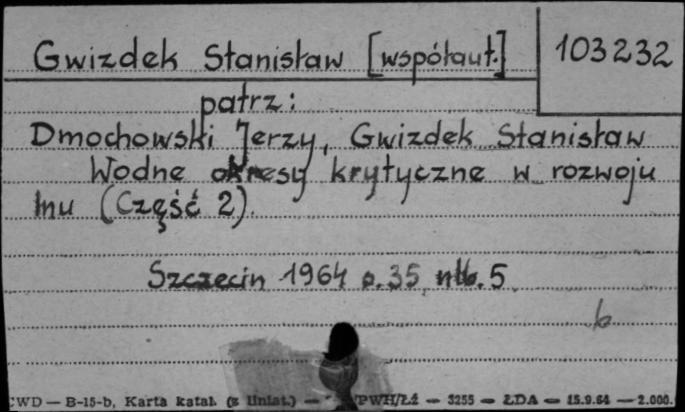 Gwizdek Stanisław [współaut.] 103232
patrz:
Dmochowski Jerzy, Gwizdek Stanisław
Wodne okresy krytyczne w rozwoju
lnu (Część 2).
Szczecin 1964 s. 35, nlb. 5.
b
CWD — B-15-b, Karta katal. (z liniat.) — PWH/Łź — 3255 — ŁDA — 15.9.64 — 2.000.